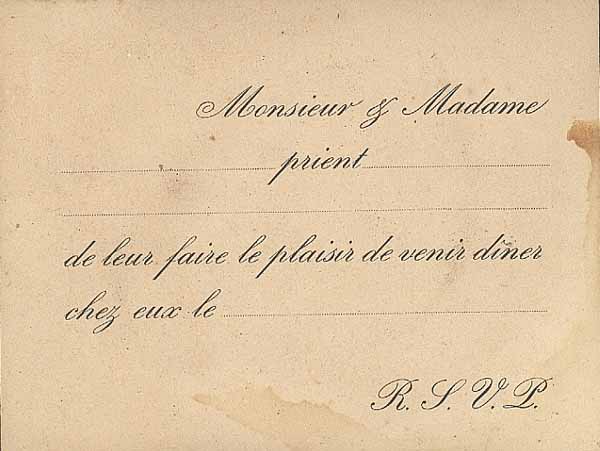 Monsieur & Madame
prient
de leur faire le plaisir de venir dîner
chez eux le
R. S. V. P.